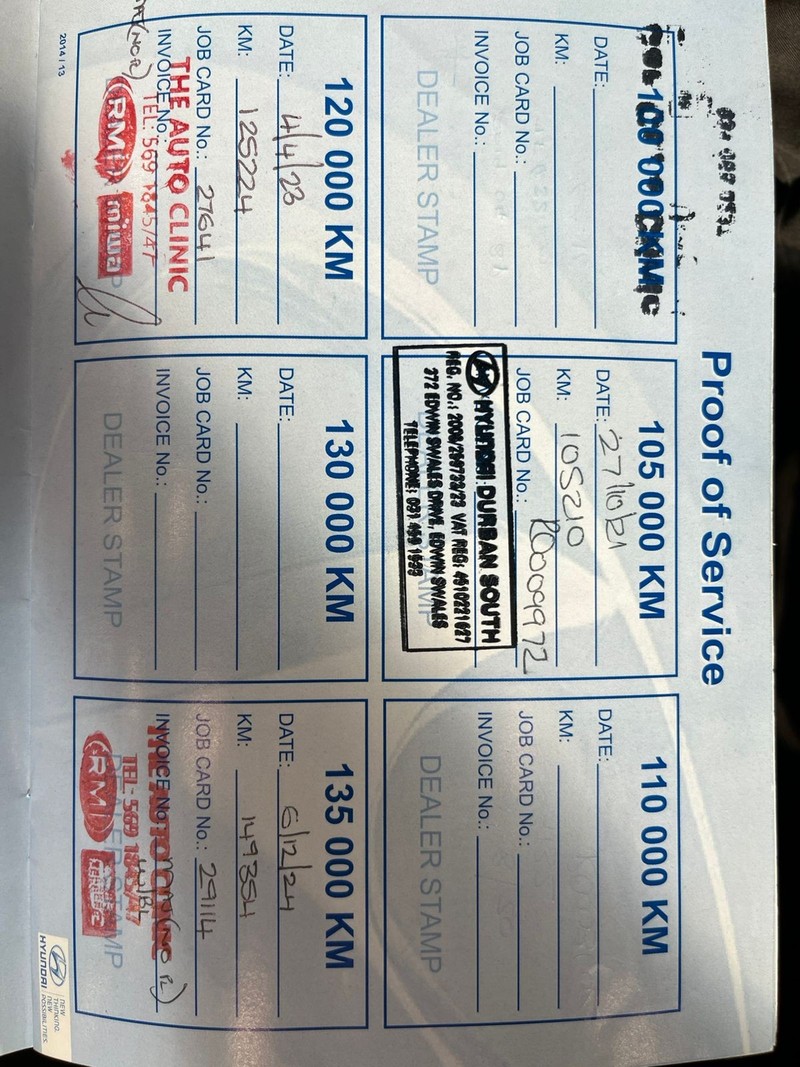 Proof of Service
100 000 KM
DATE:
KM:
JOB CARD No.:
INVOICE No.:
DEALER STAMP
105 000 KM
DATE: 27/10/21
KM: 105210
JOB CARD No.: R0009972
HYUNDAI DURBAN SOUTH
REG. NO.: 2006/299723/23 VAT REG: 4510221627
372 EDWIN SWALES DRIVE, EDWIN SWALES
TELEPHONE: 031 466 1993
110 000 KM
DATE:
KM:
JOB CARD No.:
INVOICE No.:
DEALER STAMP
120 000 KM
DATE: 4/4/23
KM: 125224
JOB CARD No.: 27641
INVOICE No.:
THE AUTO CLINIC
TEL: 569 1845/47
RMI miwa
130 000 KM
DATE:
KM:
JOB CARD No.:
INVOICE No.:
DEALER STAMP
135 000 KM
DATE: 6/12/24
KM: 149354
JOB CARD No.: 29114
INVOICE No.:
THE AUTO CLINIC
TEL: 569 1845/47
RMI
DEALER STAMP
2014 / 13
HYUNDAI
NEW
THINKING.
NEW
POSSIBILITIES.